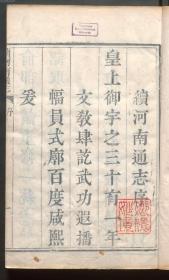 續河南通志序
皇上御宇之三十有一年
文敎肆訖武功遐播
幅員式廓百度咸熙
爰